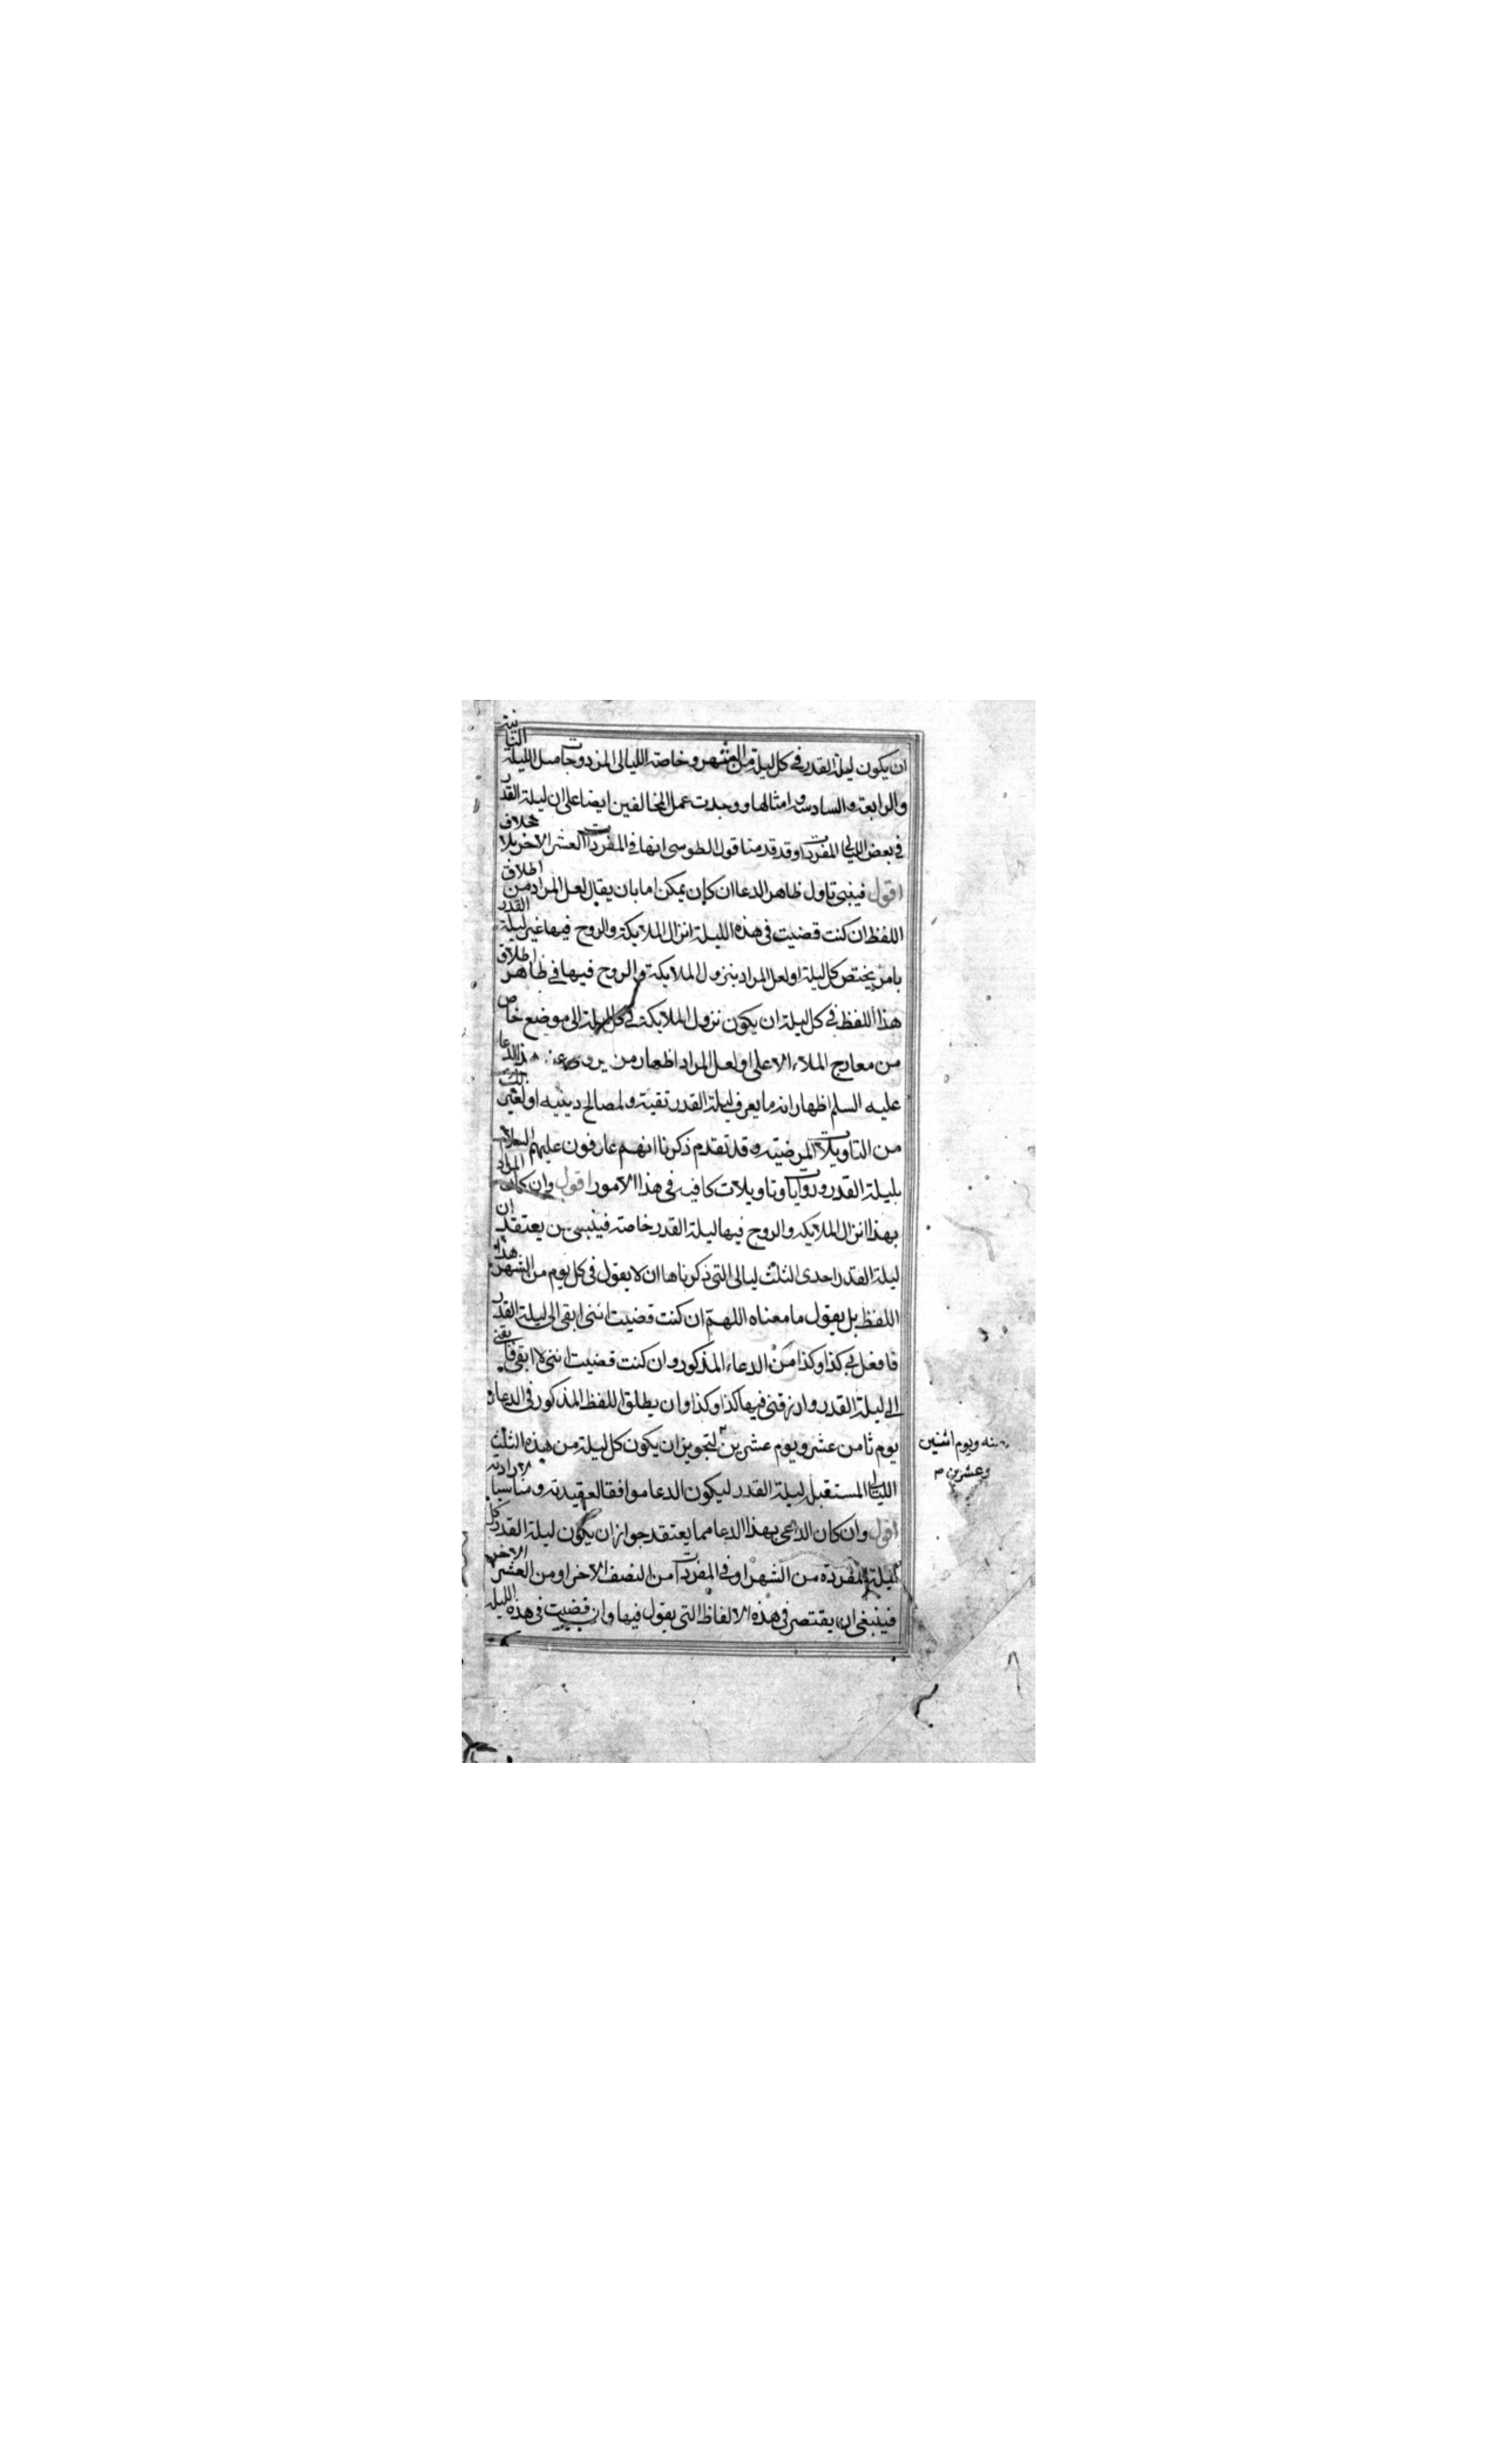 ان يكون ليلة القدر في كل ليلة من الشهر وخاصة الليالي المزدوجات مثل الليلة الثانية
والرابعة والسادسة وامثالها ووجدت عمل المخالفين ايضا على ان ليلة القدر
في بعض الليالي المفردات وقد قدمنا قول الطوسي انها في المفردات العشر الاخر بلا خلاف
اقول فينبغي تاول ظاهر الدعا ان كان يمكن اما بان يقال لعل المراد من اطلاق
اللفظ ان كنت قضيت في هذه الليلة انزال الملايكة والروح فيها غير ليلة القدر
بامر يختص كل ليلة او لعل المراد بنزول الملايكة والروح فيها في ظاهر اطلاق
هذا اللفظ في كل ليلة ان يكون نزول الملايكة في كل ليلة الى موضع خاص
من معارج الملاء الاعلى او لعل المراد اظهار من يروى عنه هذا الدعا
عليه السلم اظهار انه ما يعرف ليلة القدر تقية ولمصالح دينيه او لغير ذلك
من التاويلات المرضية وقد تقدم ذكرنا انهم عارفون عليهم السلام
بليلة القدر وروايات وتاويلات كافية في هذا الامور اقول وان كان المراد
بهذا انزال الملايكه والروح فيها ليلة القدر خاصة فينبغي من يعتقد ان
ليلة القدر احدى الثلث ليالي التي ذكرناها ان لا يقول في كل يوم من الشهر هذا
اللفظ بل يقول ما معناه اللهم ان كنت قضيت انني ابقى الى ليلة القدر
فافعل بي كذا وكذا من الدعاء المذكور وان كنت قضيت انني لا ابقى فابقني
الى ليلة القدر وارزقني فيها كذا وكذا وان يطلق اللفظ المذكور في الدعاء
يوم ثامن عشر ويوم عشرين لتجويز ان يكون كل ليلة من هذه الثلث
منه ويوم اثنين
وعشرين م
الليالي المستقبل ليلة القدر ليكون الدعا موافقا لعقيدته ومناسبا لارادته
اقول وان كان الداعي بهذا الدعا مما يعتقد جواز ان يكون ليلة القدر كل
ليلة مفردة من الشهر او في المفردات من النصف الاخر او من العشر الاخر
فينبغي ان يقتصر في هذه الالفاظ التي يقول فيها وان قضيت في هذه الليله